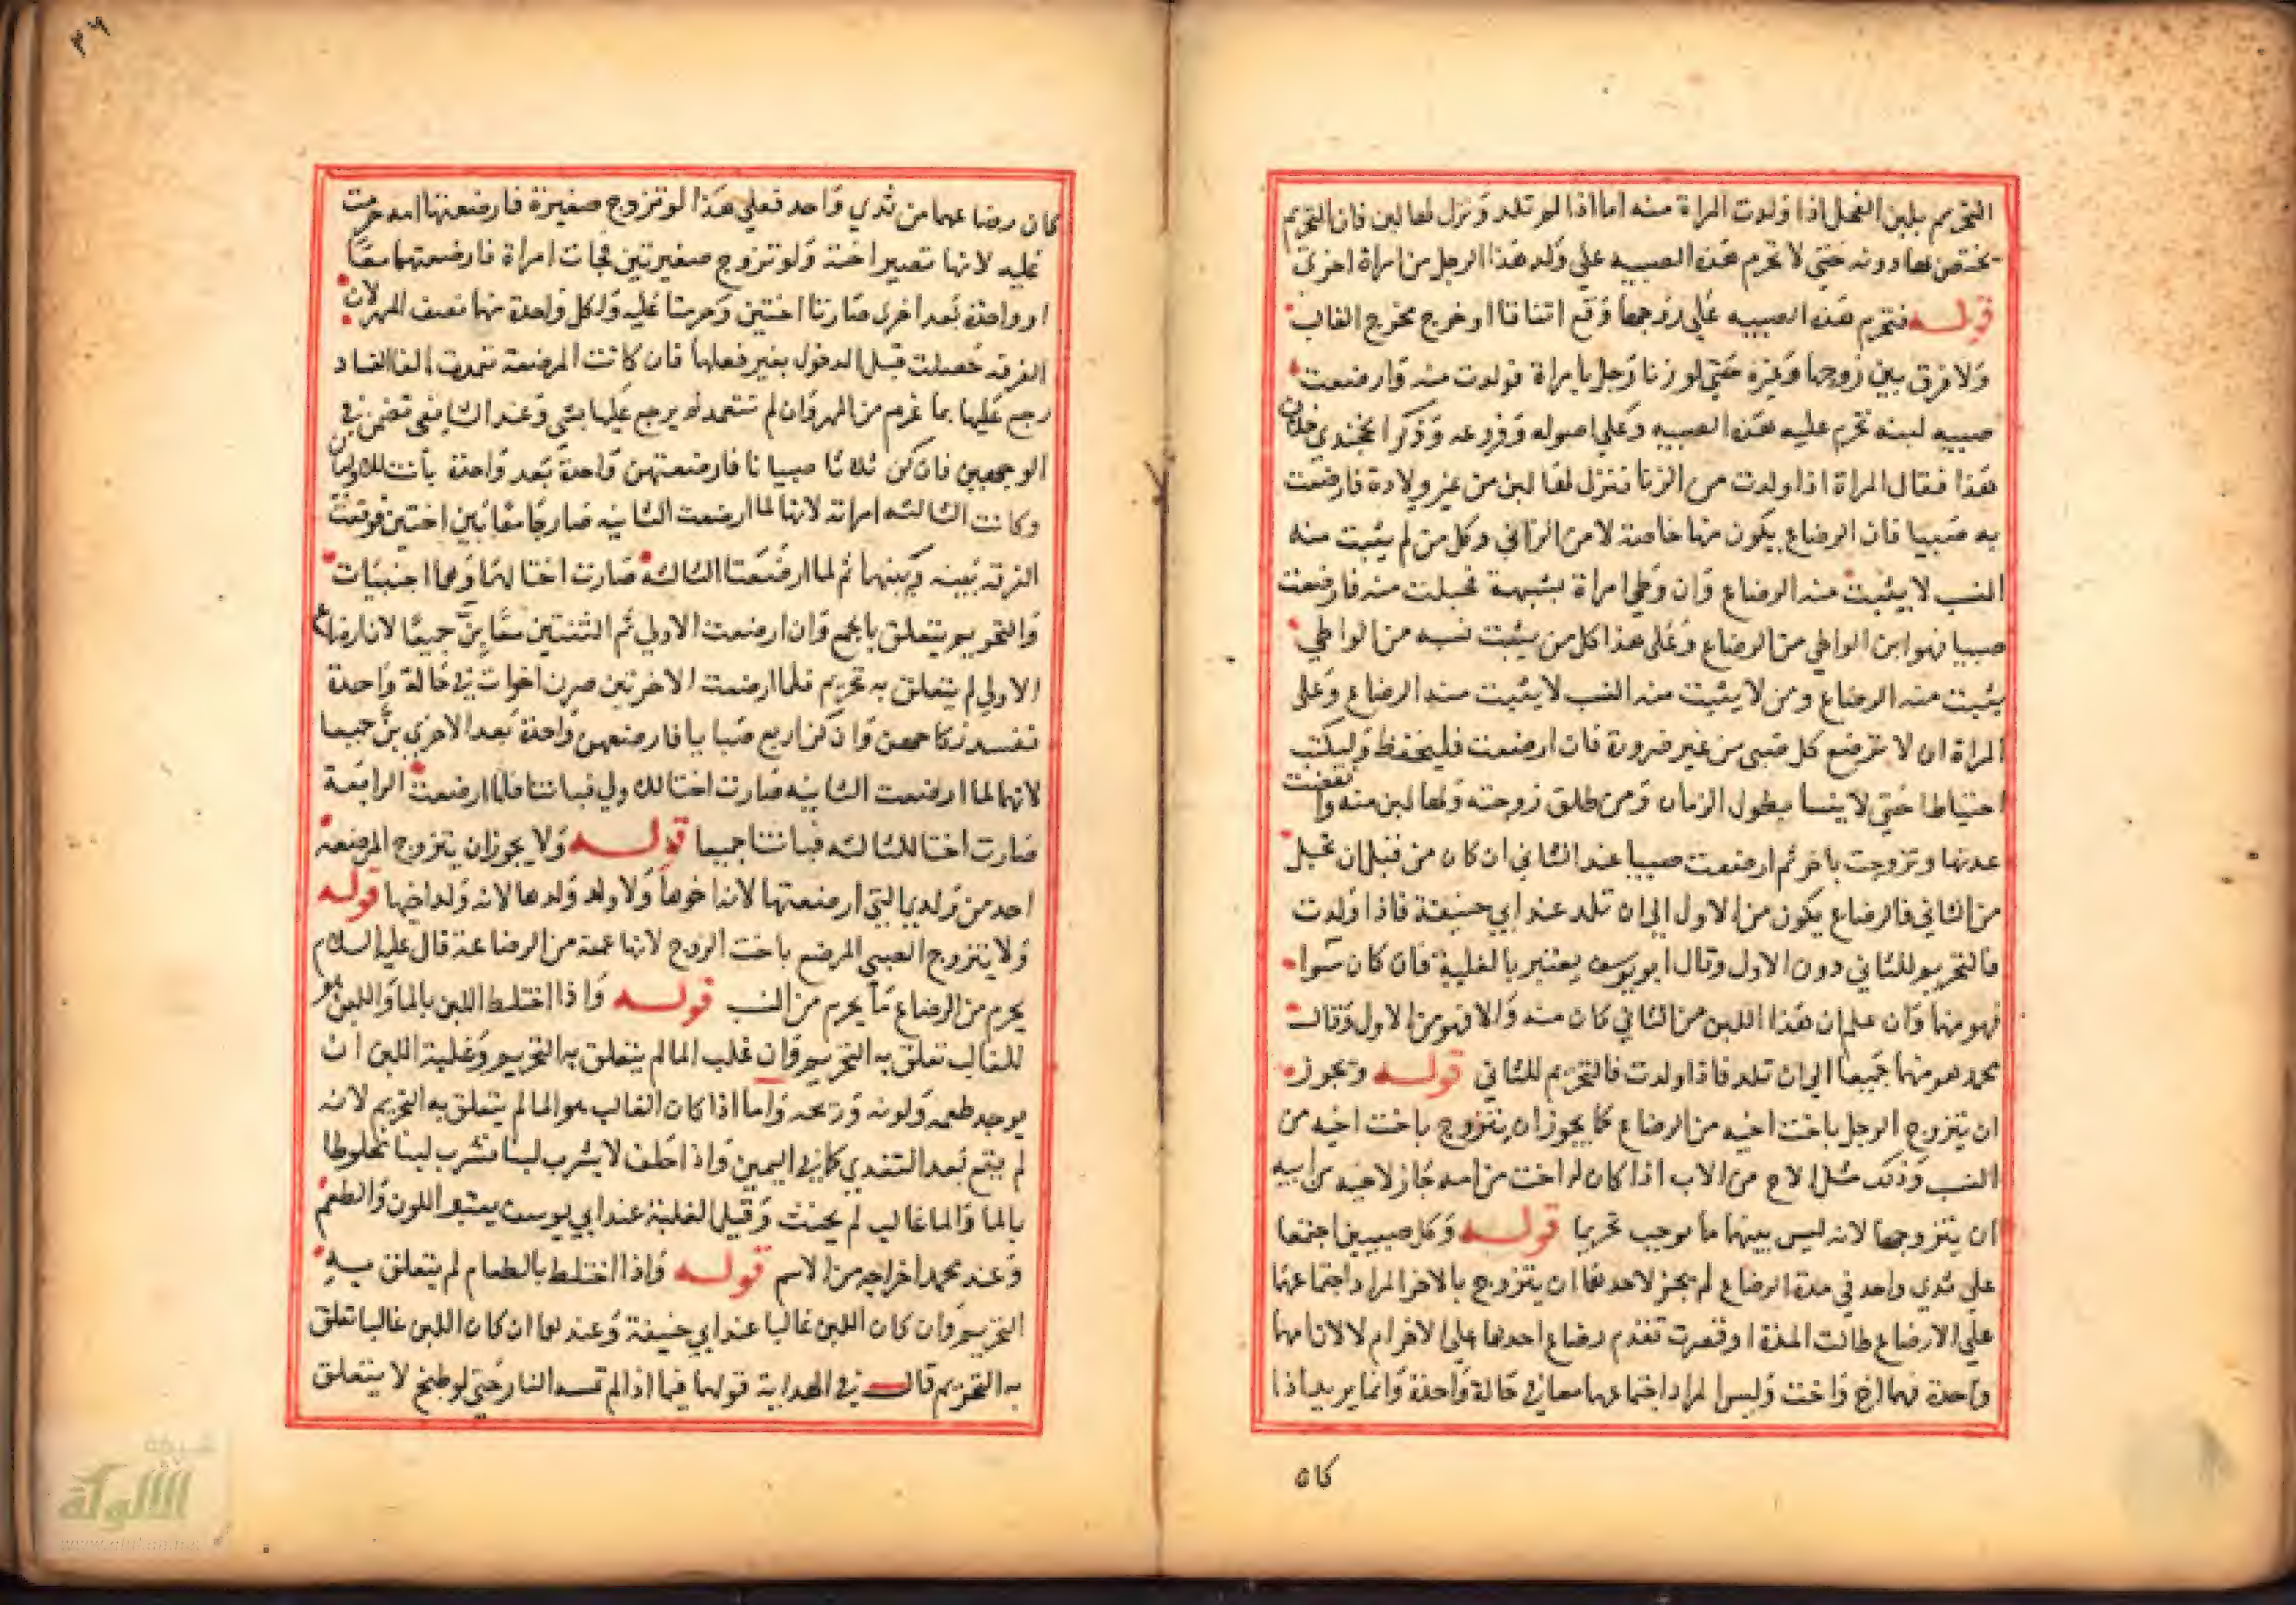 التحريم بلبن الفحل اذا ولدت المراة منه اما اذا لم تلد ونزل لها لبن فان التحريم
يختص بها دونه حتي لا تحرم هذه الصبيه علي ولد هذا الرجل من امراة اخري
قوله فتحرم هذه الصبيه علي زوجها وقع اتفاقا او خرج مخرج الغالب
ولا فرق بين زوجها وغيره حتي لو زنا رجل بامراة فولدت منه وارضعت
صبيه لبنه تحرم عليه هذه الصبيه وعلي اصوله وفروعه وذكر الخجندي خلاف
هذا فقال المراة اذا ولدت من الزنا فنزل لها لبن من غير ولادة فارضعت
به صبيا فان الرضاع يكون منها خاصة لا من الزاني وكل من لم يثبت منه
النسب لا يثبت منه الرضاع وان وطي امراة بشبهة فحبلت منه فارضعت
صبيا فهو ابن الواطي من الرضاع وعلي هذا كل من يثبت نسبه من الواطي
يثبت منه الرضاع ومن لا يثبت منه النسب لا يثبت منه الرضاع وعلي
المراة ان لا ترضع كل صبي من غير ضرورة فان ارضعت فليحفظ وليكتب
احتياطا حتي لا ينسا بطول الزمان ومن طلق زوجته ولها لبن منه وانقضت
عدتها وتزوجت باخر ثم ارضعت صبيا عند الثاني ان كان من قبل ان تحبل
من الثاني فالرضاع يكون من الاول الي ان تلد عند ابي حنيفة فاذا ولدت
فالتحريم للثاني دون الاول وقال ابو يوسف يعتبر بالغلبة فان كان سوا
فهو منهما وان علم ان هذا اللبن من الثاني كان منه والا فهو من الاول وقال
محمد هو منهما جميعا الي ان تلد فاذا ولدت فالتحريم للثاني قوله ويجوز
ان يتزوج الرجل باخت اخيه من الرضاع كما يجوز ان يتزوج باخت اخيه من
النسب وذلك مثل الاخ من الاب اذا كان له اخت من امه جاز لاخيه من ابيه
ان يتزوجها لانه ليس بينهما ما يوجب تحريما قوله وكل صبيين اجتمعا
علي ثدي واحد في مدة الرضاع لم يجز لاحدهما ان يتزوج بالاخر المراد اجتماعهما
علي الارضاع طالت المدة او قصرت تقدم رضاع احدهما علي الاخر ام لا لان امهما
واحدة فهما اخ واخت وليس المراد اجتماعهما معا في حالة واحدة وانما يريد اذا
كان
٣٩
كان رضاعهما من ثدي واحد فعلي هذا لو تزوج صغيرة فارضعتها امه حرمت
عليه لانها تصير اخته ولو تزوج صغيرتين فجات امراة فارضعتهما معا
او واحدة بعد اخري صارتا اختين وحرمتا عليه ولكل واحدة منهما نصف المهر لان
الفرقه حصلت قبل الدخول بغير فعلهما فان كانت المرضعة تعمدت الفساد
رجع عليها بما غرم من المهر وان لم تتعمد لم يرجع عليها بشي وعند الشافعي تضمن في
الوجهين فان كن ثلاثا صبيانا فارضعتهن واحدة بعد واحدة بانت الاوليان
وكانت الثالثه امراته لانها لما ارضعت الثانيه صار جامعا بين اختين فوقعت
الفرقه بينه وبينهما ثم لما ارضعت الثالثة صارت اختا لهما وهما اجنبيات
والتحريم يتعلق بالجمع وان ارضعت الاولي ثم الثنتين معا بن جميعا لان ارضاع
الاولي لم يتعلق به تحريم فلما ارضعت الاخرتين صرن اخوات في حالة واحدة
فيفسد نكاحهن وان كن اربع صبايا فارضعهن واحدة بعد الاخري بن جميعا
لانها لما ارضعت الثانيه صارت اختا للاولي فبانتا فلما ارضعت الرابعة
صارت اختا للثالثه فبانتا جميعا قوله ولا يجوز ان يتزوج المرضعه
احد من ولد التي ارضعتها لانه اخوها ولا ولد ولدها لانه ولد اخيها قوله
ولا يتزوج الصبي المرضع باخت الزوج لانها عمته من الرضاعة قال عليه السلام
يحرم من الرضاع ما يحرم من النسب قوله واذا اختلط اللبن بالما واللبن هو
الغالب تعلق به التحريم وان غلب الما لم يتعلق به التحريم وغلبة اللبن ان
يوجد طعمه ولونه وريحه واما اذا كان الغالب هو الما لم يتعلق به التحريم لانه
لم يقع بعد التغذي كما في اليمين واذا حلف لا يشرب لبنا فشرب لبنا مخلوطا
بالما والما غالب لم يحنث وقيل الغلبة عند ابي يوسف يعتبر اللون والطعم
وعند محمد اخراجه من الاسم قوله واذا اختلط بالطعام لم يتعلق به
التحريم وان كان اللبن غالبا عند ابي حنيفة وعندهما ان كان اللبن غالبا تعلق
به التحريم قال في الهداية قولهما فيما اذا لم تمسه النار حتي لو طبخ لا يتعلق
شبكة
الألوكة